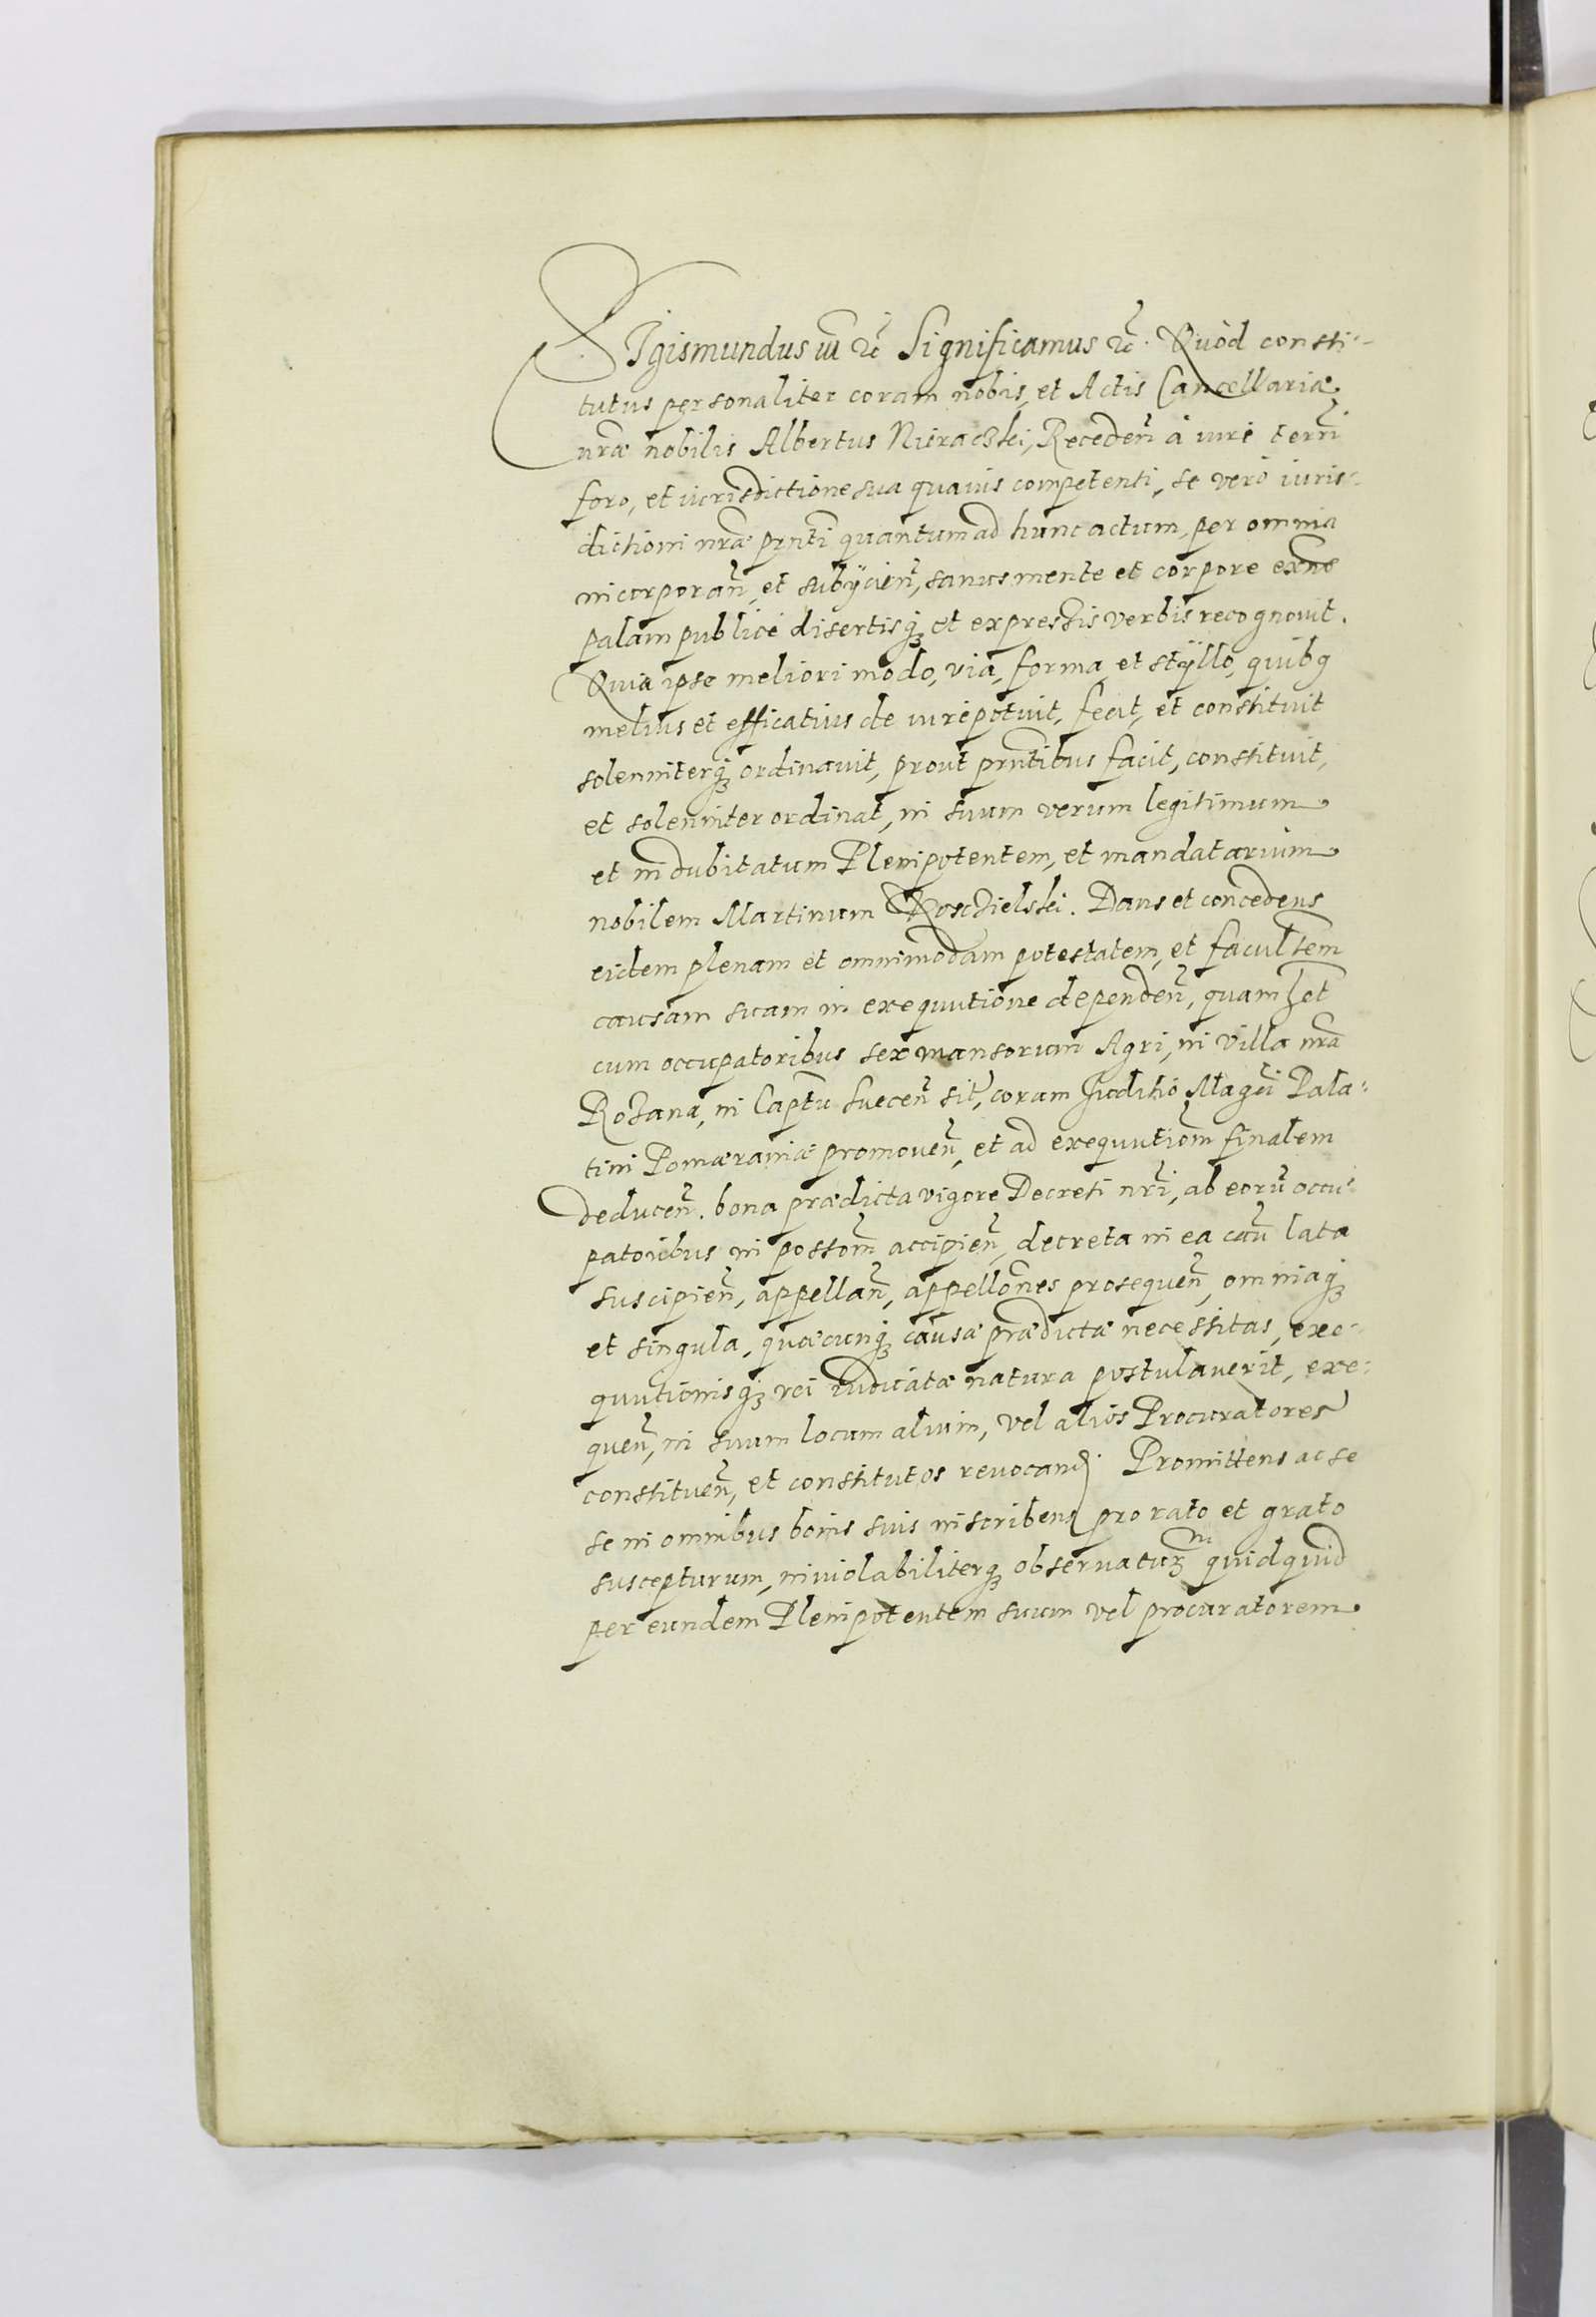 SIgismundus III &c̃ Significamus &c̃. Quòd consti-
tutus personaliter coram nobis, et Actis Cancellariæ
nr̃æ nobilis Albertus Nieraczki, Recedeñ à iurè terrñi
foro, et iurisdictione sua quauis competenti, se verò iuris-
dictioni nr̃æ prñti quantum ad hunc actum, per omnia
incorporañ, et subÿcieñ, sanus mente et corpore exñs
palam publicè disertisq3 et expressis verbis recognouit.
Quia ipse meliori modo, via, forma, et stÿllo, quibq
melius et efficatius de iurè potuit, fecit, et constituit
solenniterq3 ordinauit, prout prñtibus facit, constituit,
et solenniter ordinat, in suum verum legitimum
et indubitatum Plenipotentem, et mandatarium
nobilem Martinum Koscielski. Dans et concedens
eidem plenam et omnimodam potestatem, et facultẽm
causam suam in exequutione dependeñ, quam het
cum occupatoribus sex mansorum Agri, in villa nr̃a
Rozana, in Captũ Sueceñ sit̃, coram Iuditio Magci Pala-
tini Pomæraniæ promoueñ, et ad exequutiom̃ finalem
deduceñ. bona prædicta vigore Decreti nr̃i, ab eorũ occu-
patoribus in possom̃ accipieñ, decreta in ea caũ lata
suscipieñ, appellañ, appellões prosequeñ, omniaq3
et singula, quæcunq3 causæ prædictæ necessitas, exe-
quutionisq3 rei iudicatæ natura postulauerit, exe-
queñ, in suum locum alium, vel alios Procuratores
constitueñ, et constitutos reuocand. Promittens ac se
se in omnibus bonis suis inscribens pro rato et grato
suscepturum, inuiolabiliterq3 obseruatur3 quidquid
per eundem Plenipotentem suum vel procuratorem